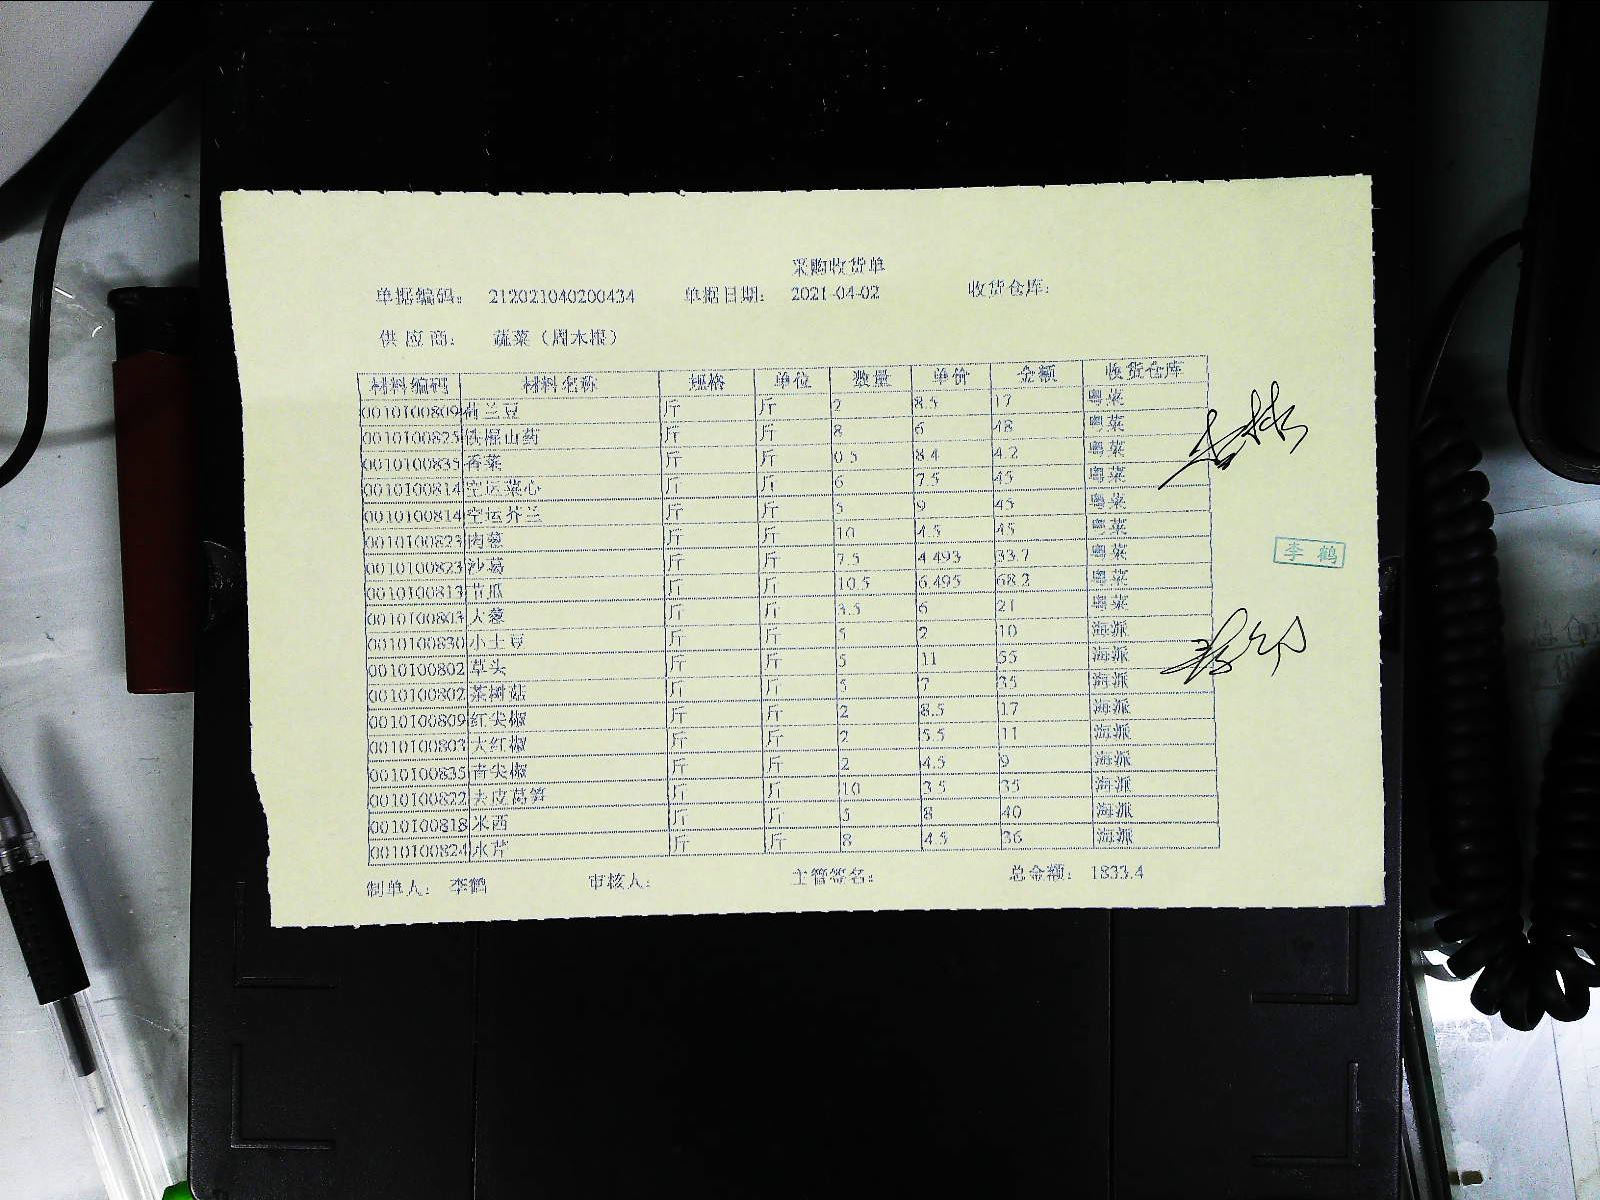 采购收货单
单据编码： 212021040200434 单据日期： 2021-04-02 收货仓库：
供应商： 蔬菜（周木根）
材料编码 材料名称 规格 单位 数量 单价 金额 收货仓库
0010100809 荷兰豆 斤 斤 2 8.5 17 粤菜
0010100825 铁棍山药 斤 斤 8 6 48 粤菜
0010100835 香菜 斤 斤 0.5 8.4 4.2 粤菜
0010100814 空运菜心 斤 斤 6 7.5 45 粤菜
0010100814 空运芥兰 斤 斤 5 9 45 粤菜
0010100823 肉葱 斤 斤 10 4.5 45 粤菜
0010100823 沙葛 斤 斤 7.5 4.493 33.7 粤菜
0010100813 节瓜 斤 斤 10.5 6.495 68.2 粤菜
0010100803 大葱 斤 斤 3.5 6 21 粤菜
0010100830 小土豆 斤 斤 5 2 10 海派
0010100802 草头 斤 斤 5 11 55 海派
0010100802 茶树菇 斤 斤 5 7 35 海派
0010100809 红尖椒 斤 斤 2 8.5 17 海派
0010100803 大红椒 斤 斤 2 5.5 11 海派
0010100835 青尖椒 斤 斤 2 4.5 9 海派
0010100822 去皮莴笋 斤 斤 10 3.5 35 海派
0010100818 米西 斤 斤 5 8 40 海派
0010100824 水芹 斤 斤 8 4.5 36 海派
制单人： 李鹤 审核人： 主管签名： 总金额： 1833.4
李鹤